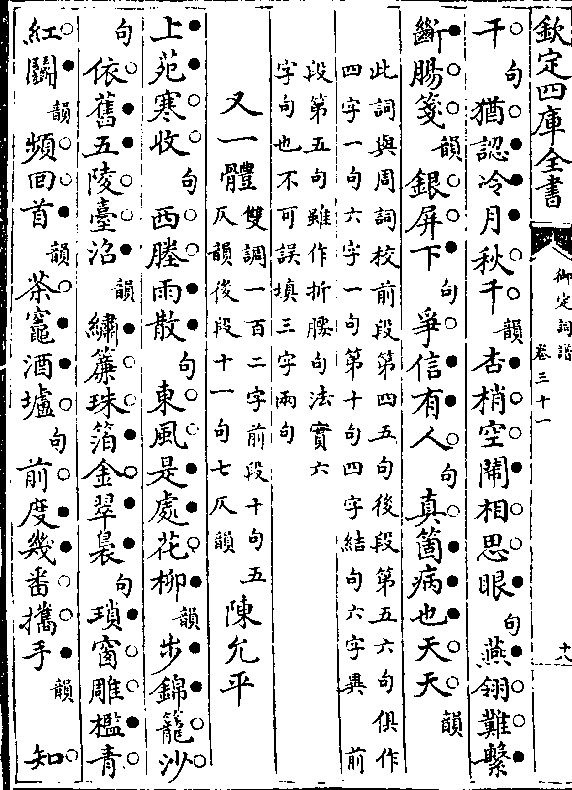 欽定四庫全書
御定詞譜
卷三十一
十八
干句猶認冷月秋千韻杏梢空鬧相思眼句燕翎難繫
斷腸箋韻銀屏下句爭信有人句真箇病也天天韻
此詞與周詞校前段第四五句後段第五六句俱作
四字一句六字一句第十句四字結句六字異 前
段第五句雖作折腰句法實六
字句也不可誤填三字兩句
又一體
雙調一百二字前段十句五
仄韻後段十一句七仄韻
陳允平
上苑寒收句西塍雨散句東風是處花柳韻步錦籠沙
句依舊五陵臺沼韻繡簾珠箔金翠裊句瑣窗雕檻青
紅鬭韻頻回首韻茶竈酒壚句前度幾番攜手韻 知